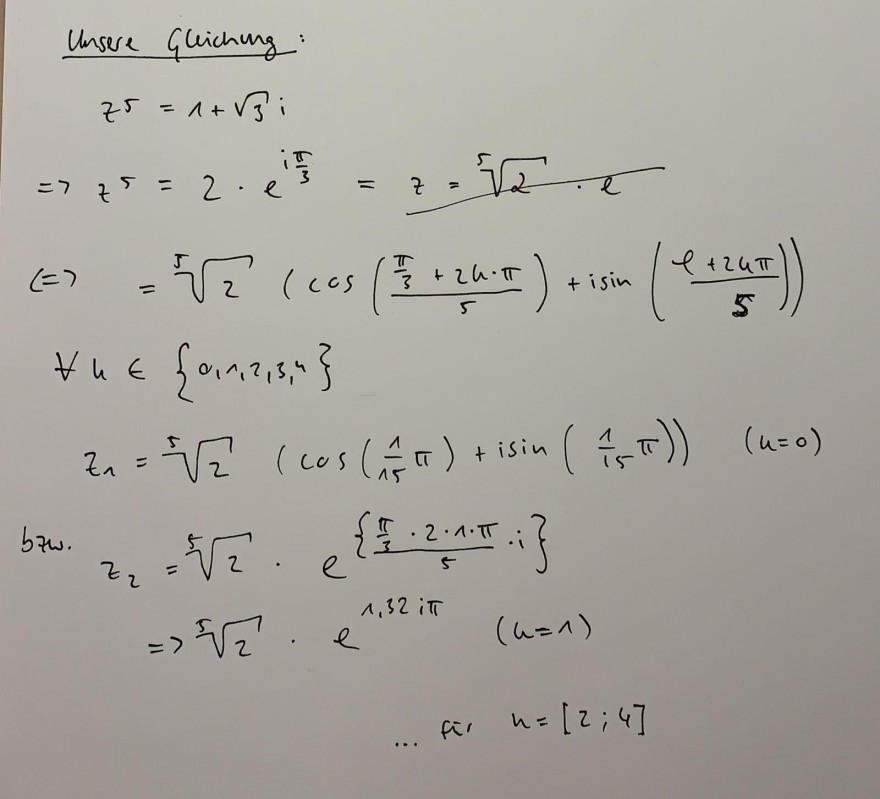 Unsere Gleichung :
z⁵ = 1 + √3 i
=> z⁵ = 2 · e^(i π/3) = z = ⁵√2 · e
<=> = ⁵√2 (cos ((π/3 + 2k·π)/5) + i sin ((φ + 2kπ)/5))
∀ k ∈ {0,1,2,3,4}
z₁ = ⁵√2 (cos (1/15 π) + i sin (1/15 π)) (k=0)
bzw. z₂ = ⁵√2 · e^{(π/3 · 2·1·π)/5 · i}
=> ⁵√2 · e^(1,32 iπ) (k=1)
... für k = [2 ; 4]